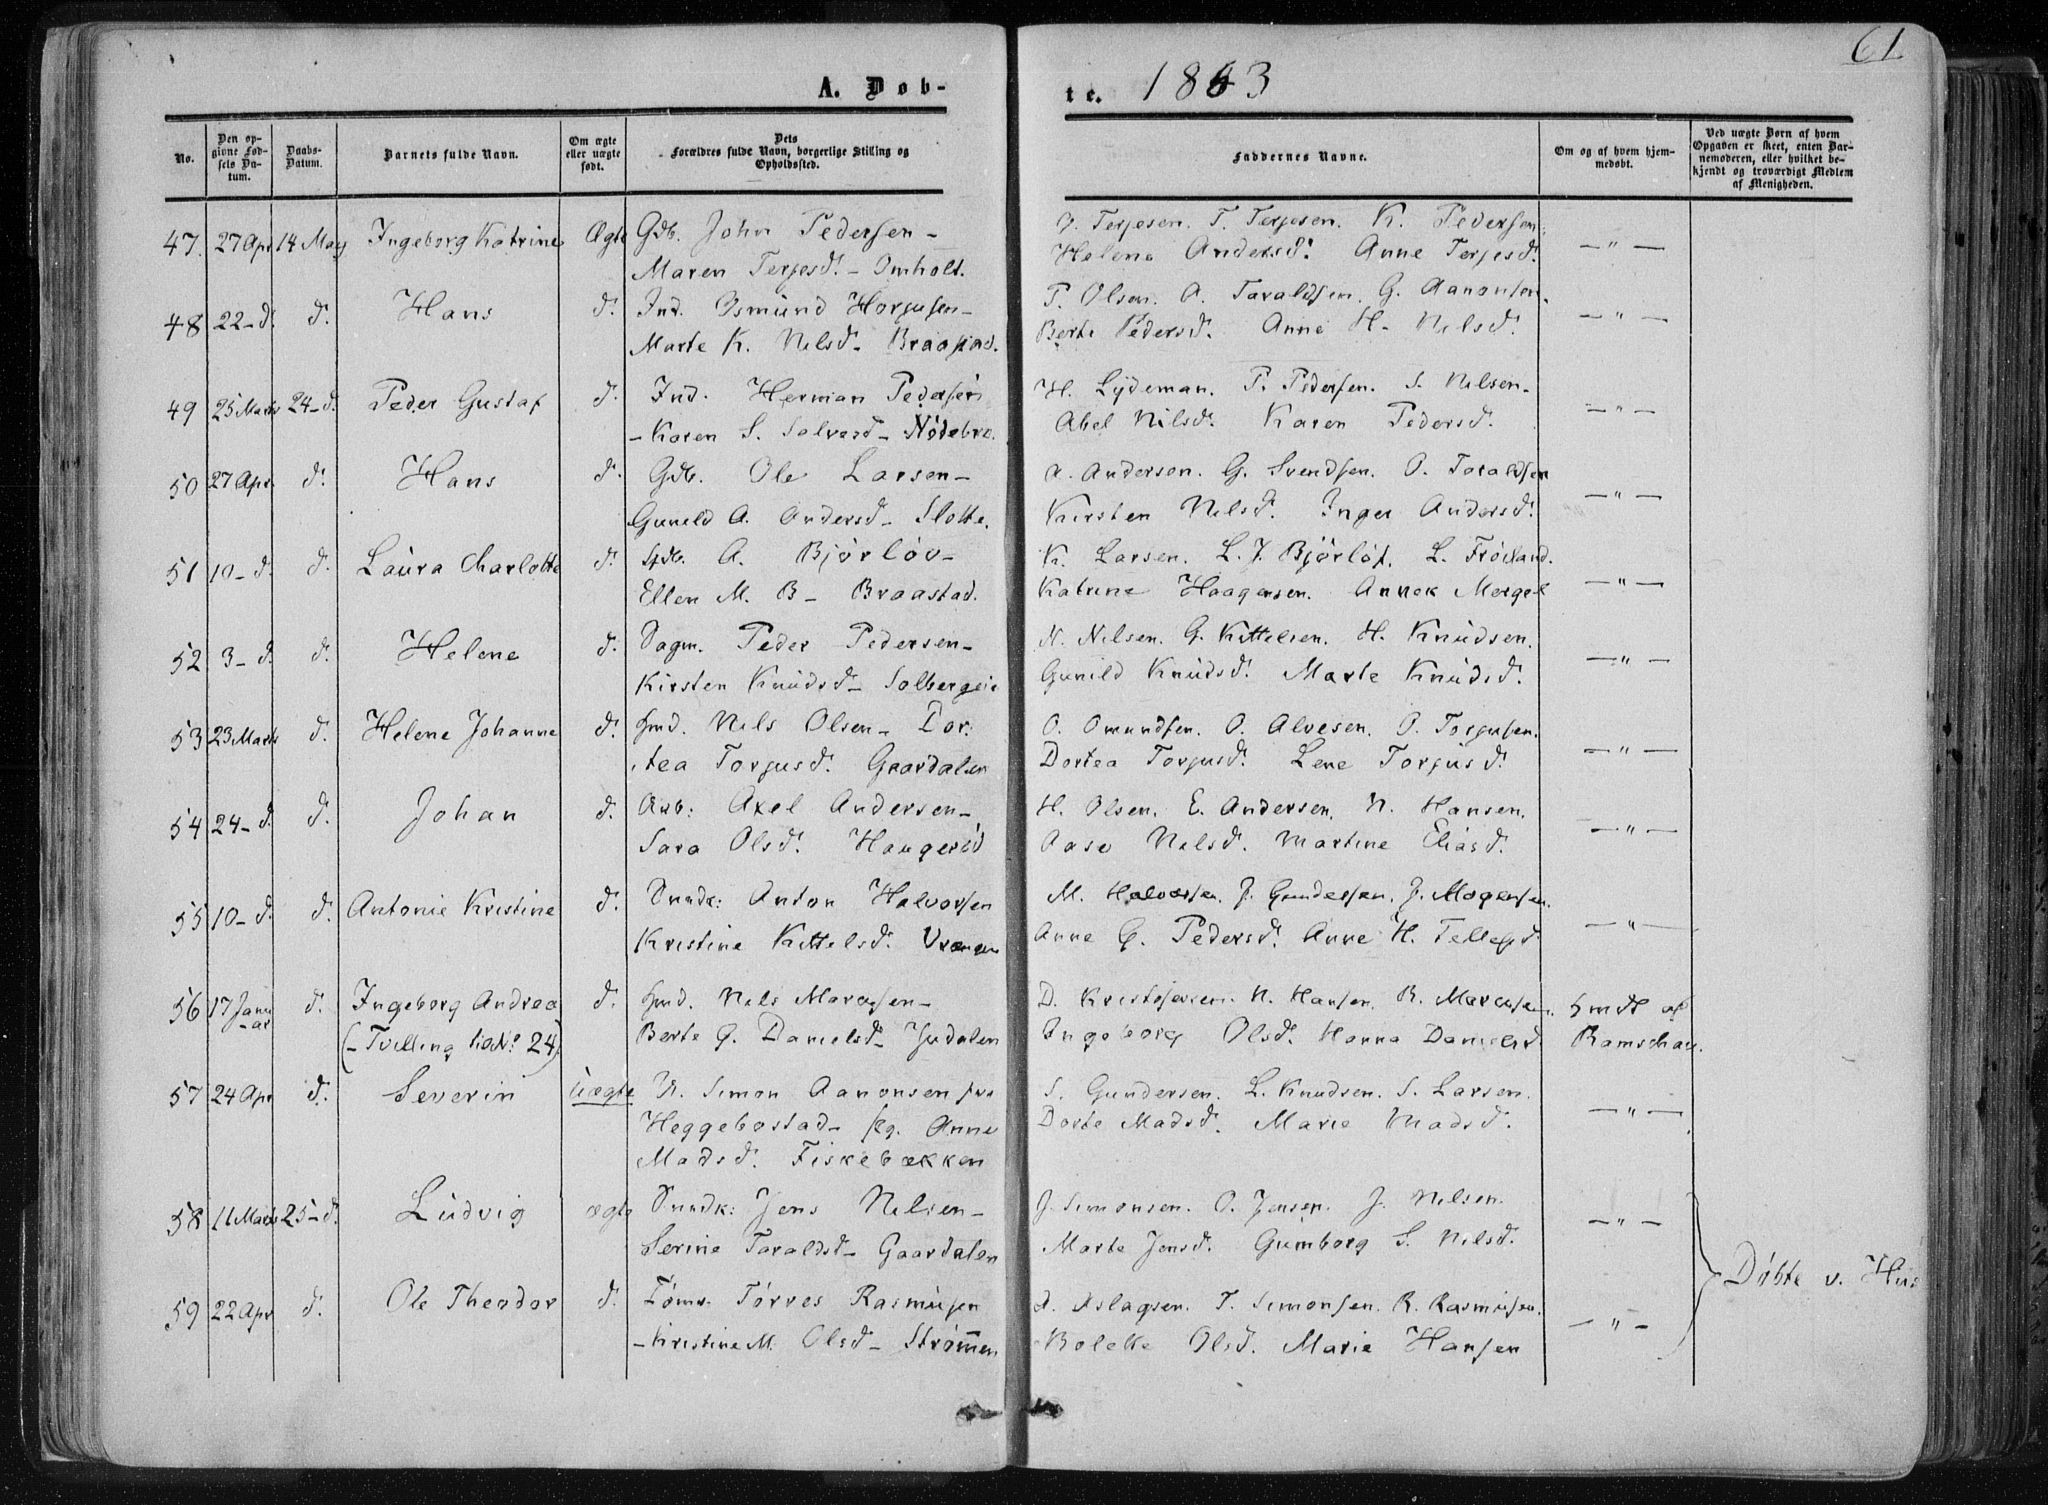 61
A. Døb-
te. 1863
No.
Den op-
givne Fød-
sels Da-
tum.
Daabs-
Datum.
Barnets fulde Navn.
Om ægte
eller uægte
født.
Dets
Forældres fulde Navn, borgerlige Stilling og
Opholdssted.
Faddernes Navne.
Om og af hvem hjem-
medøbt.
Ved uægte Børn af hvem
Opgaven er skeet, enten Bar-
nemoderen, eller hvilket be-
kjendt og troværdigt Medlem
af Menigheden.
47. 27 Apr 14 May Ingeborg Katrine Ægte Gdb. John Pedersen –
Maren Terjesd. – Omholt.
J. Terjesen. T. Terjesen. K. Pedersen.
Helene Andersd. Anne Terjesd. — " —
48 22 – d. d. Hans d. Ind. Osmund Horjusen –
Marte K. Nilsd – Braastad.
P. Olsen. A. Taraldsen. G. Aanonsen.
Berte Pedersd. Anne H. Nilsd. — " —
49 25 Marts 24 – d. Peder Gustaf d. Ind. Herman Pedersen
– Karen S. Salvesd – Nödebro.
H. Lydeman. P. Pedersen. S. Nilsen –
Abel Nilsd. Karen Pedersd. — " —
50 27 Apr d. Hans d. Gdb. Ole Larsen –
Gunild A. Andersd – Slotte.
A. Andersen. G. Svendsen. O. Taraldsen
Kirsten Nilsd. Inger Andersd. — " —
51 10 – d. d. Laura Charlotte d. Gdb. A. Bjørløv –
Ellen M. B – Braastad.
K. Larsen. L. J. Bjørløf. L. Frøiland.
Katrine Haagensen. Annek Mergel — " —
52 3 – d. d. Helene d. Dagm. Peder Pedersen –
Kirsten Knudsd – Solbergeie
N. Nilsen. G. Kittelsen. H. Knudsen.
Gunild Knudsd. Marte Knudsd. — " —
53 23 Marts d. Helene Johanne d. Hmd. Nils Olsen – Dor.
tea Torjusd. Gaardalen
O. Omundsen. O. Alvesen. O. Torjusen.
Dortea Torjusd. Lene Torjusd. — " —
54 24 – d. d. Johan d. Arb: Axel Andersen –
Sara Olsd. Haugerød
H. Olsen. E. Andersen. N. Hansen.
Aase Nilsd. Martine Eliasd. — " —
55 10 – d. d. Antonie Kristine d. Snedk: Anton Halvorsen
Kristine Kittelsd. Vrængen
M. Halvorsen. J. Gundersen. J. Mogensen.
Anne G. Pedersd. Anne H. Tellefsd — " —
56 17 Janu
– ar d. Ingeborg Andrea
(– Tvilling til No. 24) d. Hmd. Nils Marcusen –
Berte G. Danielsd – Judalen
D. Kristofersen. N. Hansen. B. Marcusen.
Ingeborg Olsd. Hanna Danielsd Hmdt af
Ramschau.
57 24 Apr d. Severin Uægte U. Simon Aanonsen fra
Heggebostad – Pg. Anne
Madsd. Fiskebækken
S. Gundersen. L. Knudsen. S. Larsen.
Dorte Madsd. Marie Madsd. — " —
58 11 Marts 25 – d. Ludvig ægte Snedk: Jens Nilsen –
Serine Taraldsd – Gaardalen
J. Simonsen. O. Jensen. J. Nilsen.
Marte Jensd. Gumborg S. Nilsd. — " —
Døbte v. Hus
59 22 Apr d. Ole Theodor d. Tømr. Tørres Rasmusen
– Kristine M. Olsd – Strømmen
A. Aslagsen. T. Simonsen. R. Rasmusen.
Bolette Olsd. Marie Hansen — " —